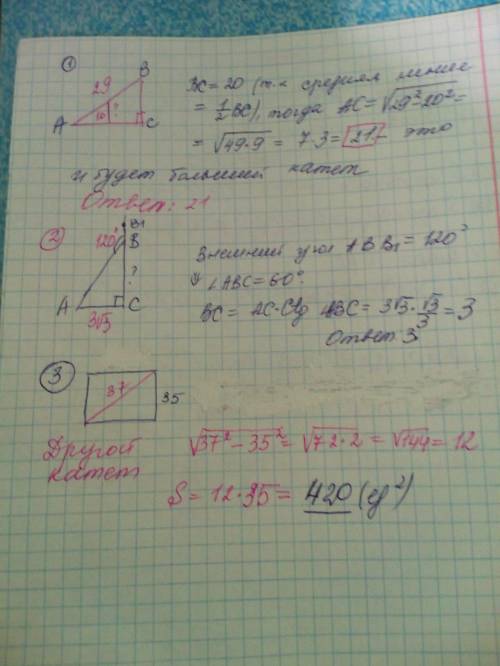 1
B
29
10
?
A
C
BC = 20 (т.к средняя линия
= 1/2 BC), тогда AC = √29²-20² =
= √49·9 = 7·3 = 21 - это
и будет больший катет
Ответ: 21
2
B1
120°
B
?
A
C
3√3
Внешний угол ABB1 = 120°
∠ABC = 60°.
BC = AC·Ctg ABC = 3√3·√3/3 = 3
Ответ 3.
3
37
35
Другой
катет
√37²-35² = √72·2 = √144 = 12
S = 12·35 = 420 (ед²)